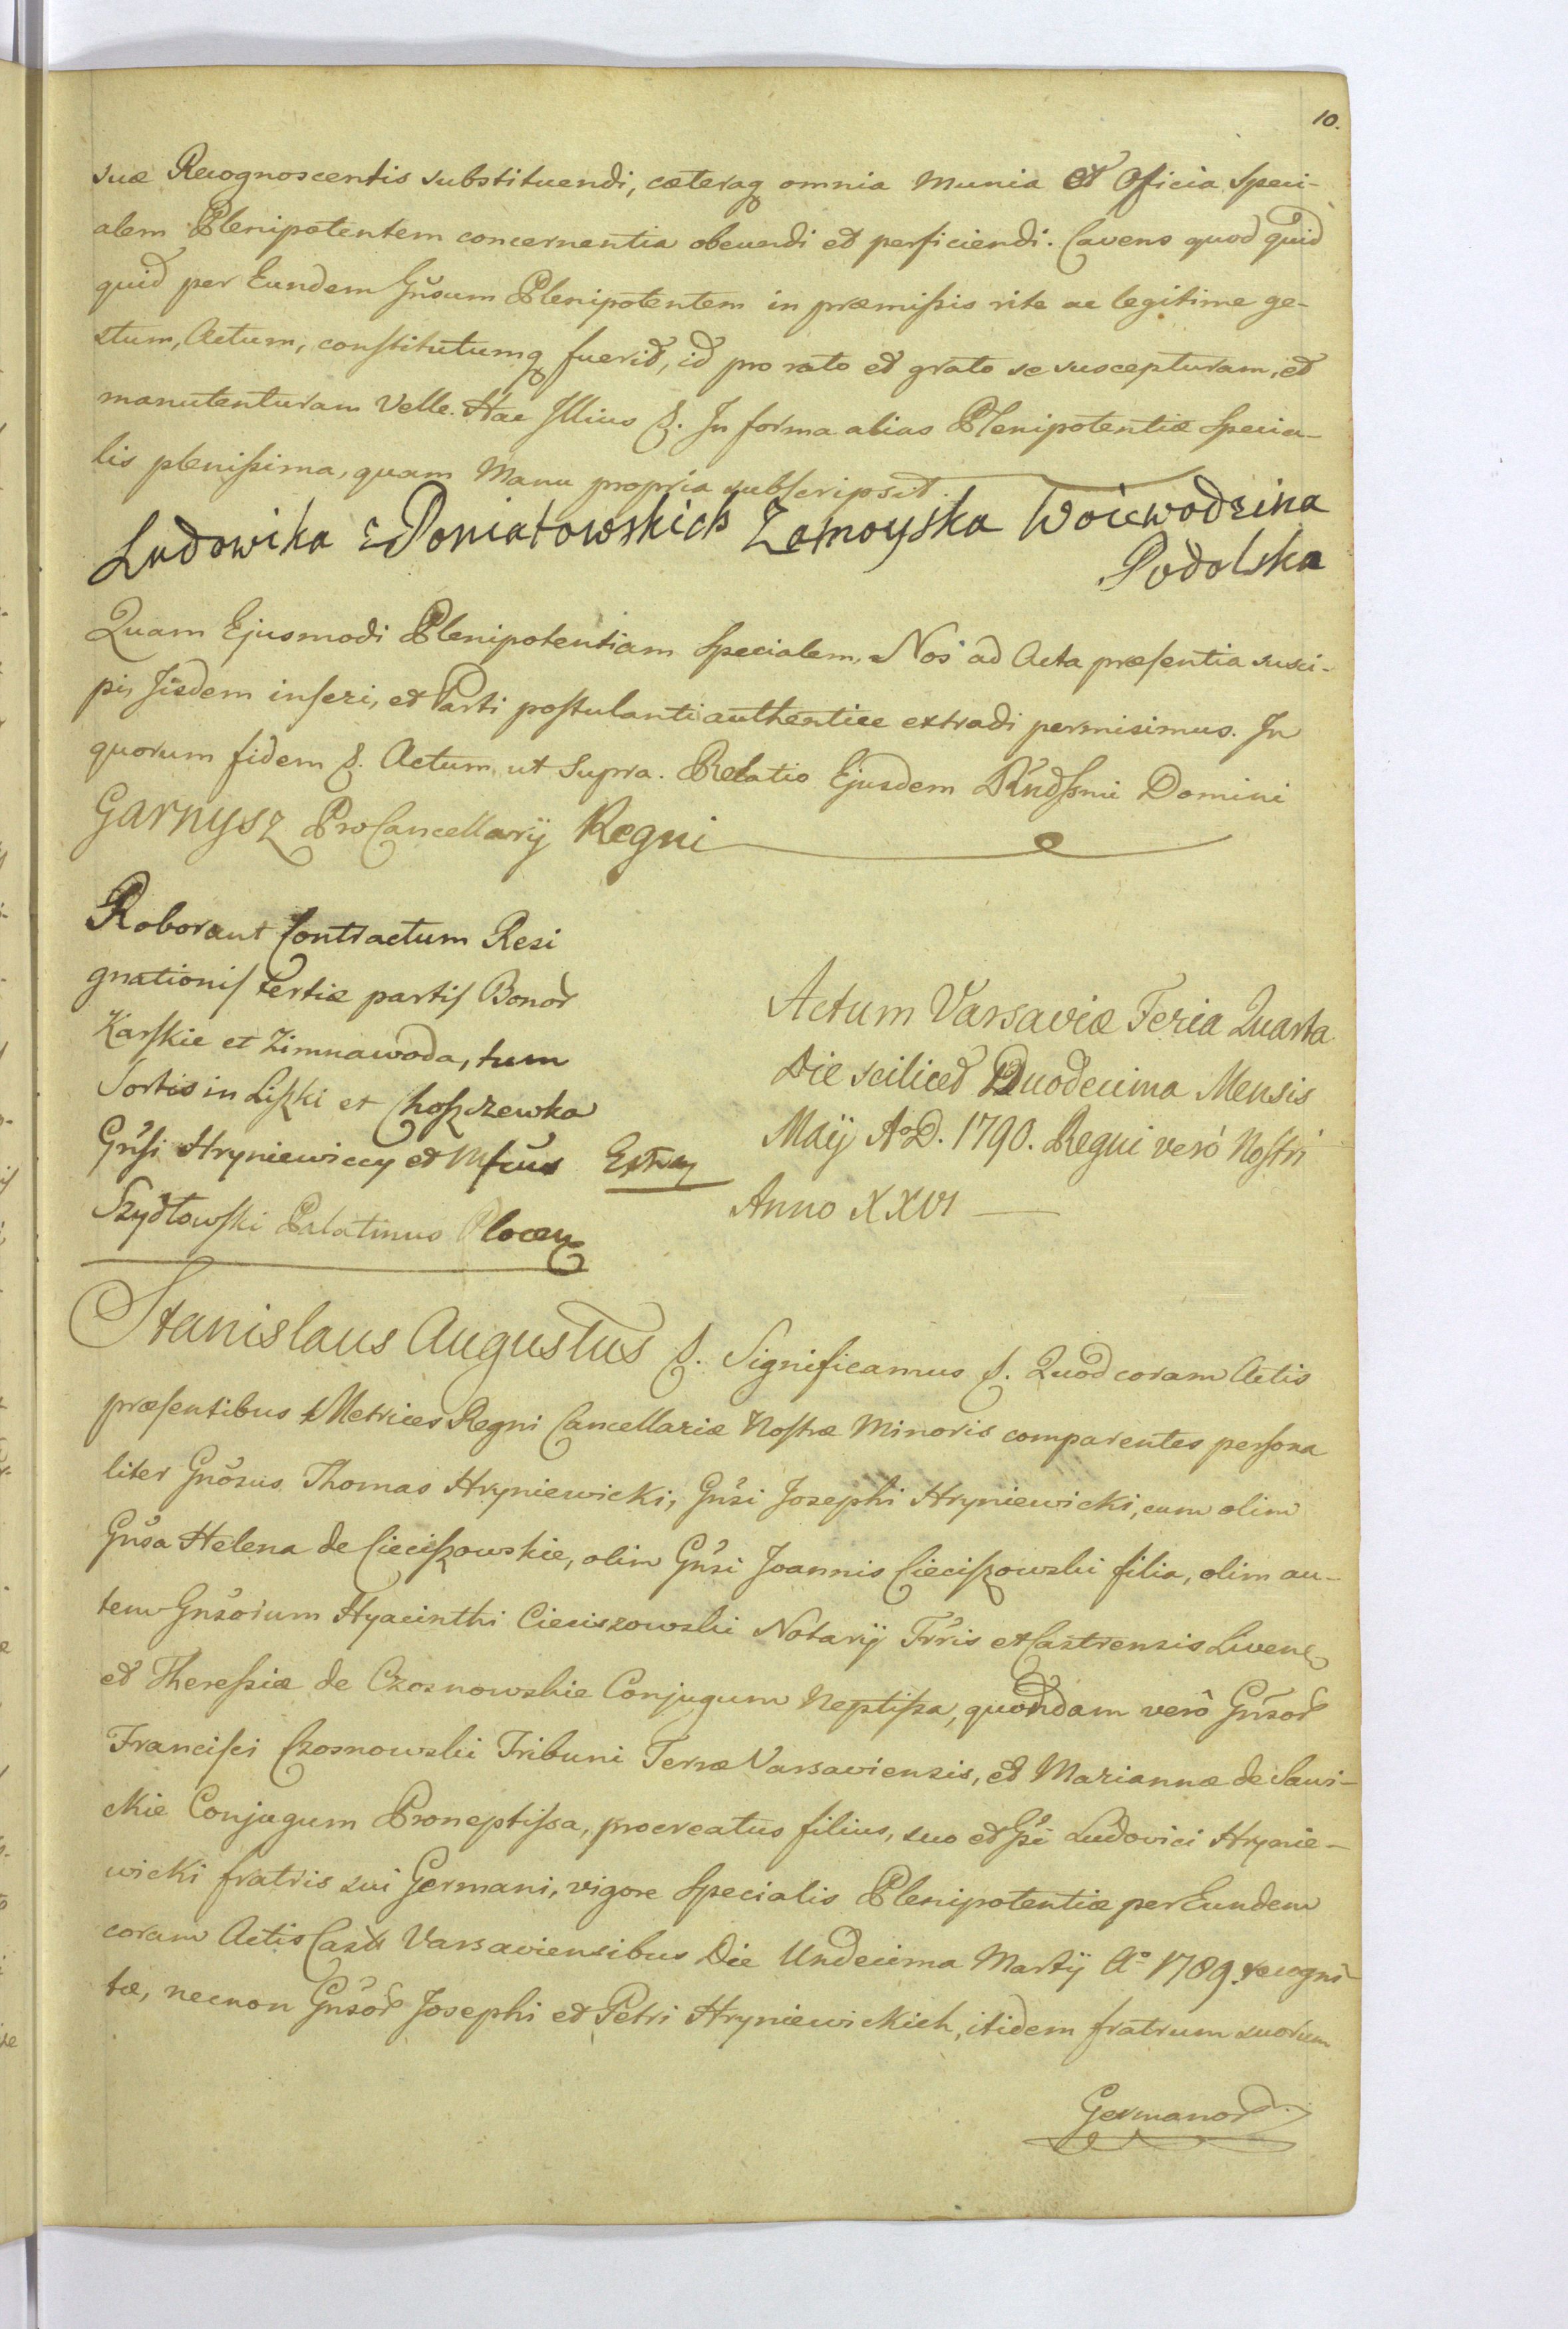 10.
suæ Recognoscentis substituendi, cæteraq omnia Munia et Officia Speci-
alem Plenipotentem concernentia obeuendi et perficiendi. Cavens quod quid
quid per Eundem Gnsum Plenipotentem in præmissis rite ac legitime ge-
stum, Actum, constitutumq fuerit, id pro rato et grato se suscepturam, et
manutenturam Velle. Hac Illius &. In forma alias Plenipotentiæ Specia-
lis plenissima, quam Manu propria subscripsit.
Ludowika z Poniatowskich Zamoyska Woiewodzina
Podolska
Quam Ejusmodi Plenipotentiam Specialem, Nos ad Acta præsentia susci-
pi, Iisdem inseri, et Parti postulanti authentice extradi permisimus. In
quorum fidem &. Actum ut Supra. Relatio Ejusdem Domini
Garnysz ProCancellarij Regni
Roborant Contractum Resi
gnationis tertiæ partis Bonor
Karskie et Zimnawoda, tum
Sortis in Liszki et Choszczewka
Gnsi Hryniewiccy et
Szydłowski Palatinus Plocen
Actum Varsaviæ Feria Quarta
Die scilicet Duodecima Mensis
Maij A.D. 1790. Regni verò Nostri
Anno XXVI
Stanislaus Augustus &. Significamus &. Quod coram Actis
præsentibus Metrices Regni Cancellariæ Nostræ Minoris comparentes persona
liter Gnosus Thomas Hryniewicki, Gnsi Josephi Hryniewicki, cum olim
Gnsa Helena de Cieciszowskie, olim Gnsi Joannis Cieciszowski filia, olim au-
tem Gnsorum Hyacinthi Cieciszowski Notarij Trris et Castrensis Livens
et Theressiæ de Czosnowskie Conjugum Neptissa, quondam verò Gnsor
Francisci Czosnowski Tribuni Terræ Varsaviensis, et Mariannæ de Savi-
ckie Conjugum Proneptissa, procreatus filius, suo et Gsi Ludovici Hrynie-
wicki fratris sui Germani, vigore Specialis Plenipotentiæ per Eundem
coram Actis Castr Varsaviensibus Die Undecima Martij Aº 1789. recogni-
tæ, necnon Gnsor Josephi et Petri Hryniewickich, itidem fratrum suorum
Germanor